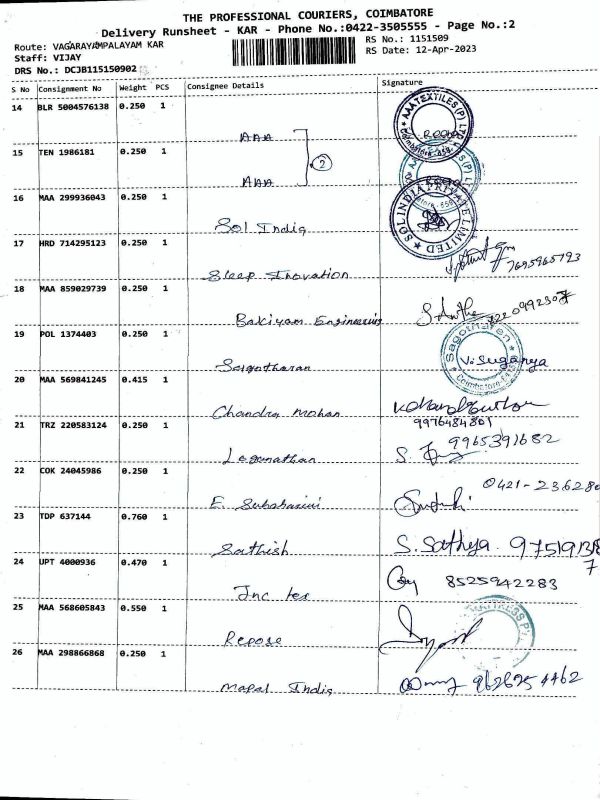 THE PROFESSIONAL COURIERS, COIMBATORE
Delivery Runsheet - KAR - Phone No.:0422-3505555 - Page No.:2
Route: VAGARAYAMPALAYAM KAR
RS No.: 1151509
Staff: VIJAY
RS Date: 12-Apr-2023
DRS No.: DCJB115150902
S No Consignment No Weight PCS Consignee Details Signature
14 BLR 5004576138 0.250 1
AAA
15 TEN 1986181 0.250 1
2
AAA
16 MAA 299936043 0.250 1
Sol India SOL INDIA PRIVATE LIMITED
17 HRD 714295123 0.250 1
Sleep Inovation 7695965793
18 MAA 859029739 0.250 1
Bakiyam Engineering
19 POL 1374403 0.250 1
Sagotharan V. Suganya
20 MAA 569841245 0.415 1
Chandra Mohan
9976484801
21 TRZ 220583124 0.250 1
Loganathan 9965391682
22 COK 24045986 0.250 1
0421-236280
E. Subaharini
23 TDP 637144 0.760 1
Sathish S. Sathya. 975191318
7
24 UPT 4000936 0.470 1
Inc tex 8525942283
25 MAA 568605843 0.550 1
Repose
26 MAA 298866868 0.250 1
Mapal India